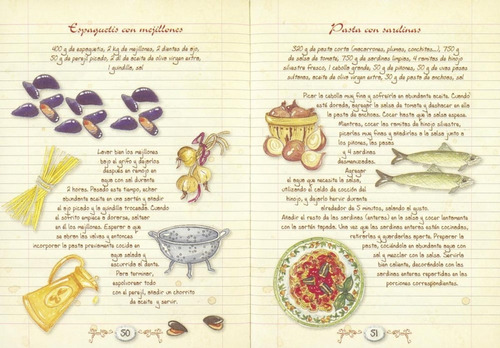 Espaguetis con mejillones
400 g de espaguetis, 2 kg de mejillones, 2 dientes de ajo,
50 g de perejil picado, 2 dl de aceite de oliva virgen extra,
1 guindilla, sal
Lavar bien los mejillones
bajo el grifo y dejarlos
después en remojo en
agua con sal durante
2 horas. Pasado este tiempo, echar
abundante aceite en una sartén y añadir
el ajo picado y la guindilla troceada. Cuando
el sofrito empiece a dorarse, saltear
en él los mejillones. Esperar a que
se abran las valvas y entonces
incorporar la pasta previamente cocida en
agua salada y
escurrida al dente.
Para terminar,
espolvorear todo
con el perejil, añadir un chorrito
de aceite y servir.
50
Pasta con sardinas
320 g de pasta corta (macarrones, plumas, conchitas...), 750 g
de salsa de tomate, 750 g de sardinas limpias, 4 ramitas de hinojo
silvestre fresco, 1 cebolla grande, 50 g de piñones, 50 g de uvas pasas
sultanas, aceite de oliva virgen extra, 30 g de pasta de anchoas, sal
Picar la cebolla muy fina y sofreírla en abundante aceite. Cuando
esté dorada, agregar la salsa de tomate y deshacer en ella
la pasta de anchoas. Cocer hasta que la salsa espese.
Mientras, cocer las ramitas de hinojo silvestre,
picarlas muy finas y añadirlas a la salsa junto a
los piñones, las pasas
y 4 sardinas
desmenuzadas.
Agregar
el agua que necesite la salsa,
utilizando el caldo de cocción del
hinojo, y dejarla hervir durante
alrededor de 5 minutos, salando al gusto.
Añadir el resto de las sardinas (enteras) en la salsa y cocer lentamente
con la sartén tapada. Una vez que las sardinas enteras estén cocinadas,
retirarlas y guardarlas aparte. Preparar la
pasta, cociéndola en abundante agua con
sal y mezclar con la salsa. Servirla
bien caliente, decorándola con las
sardinas enteras repartidas en las
porciones correspondientes.
51